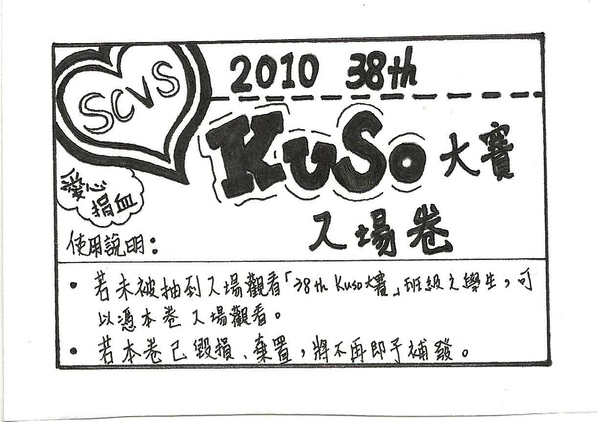 SCVS
2010 38th
KuSo大賽
愛心
捐血
入場卷
使用說明：
• 若未被抽到入場觀看「38th Kuso大賽」班級之學生，可
以憑本卷入場觀看。
• 若本卷已毀損、棄置，將不再即予補發。